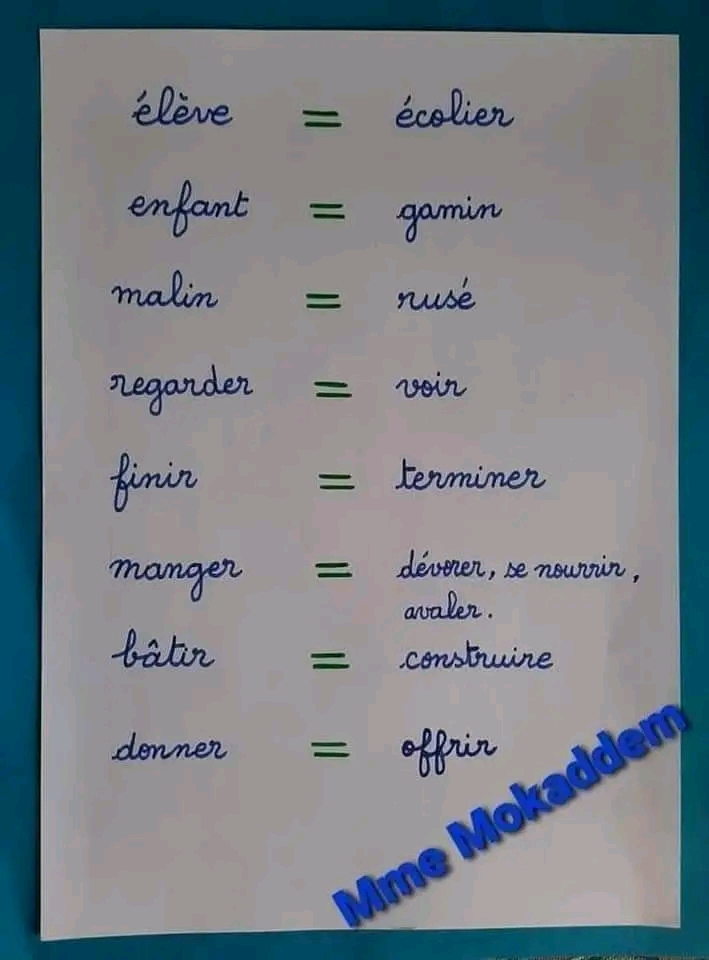 élève = écolier
enfant = gamin
malin = rusé
regarder = voir
finir = terminer
manger = dévorer, se nourrir,
avaler.
bâtir = construire
donner = offrir
Mme Mokaddem